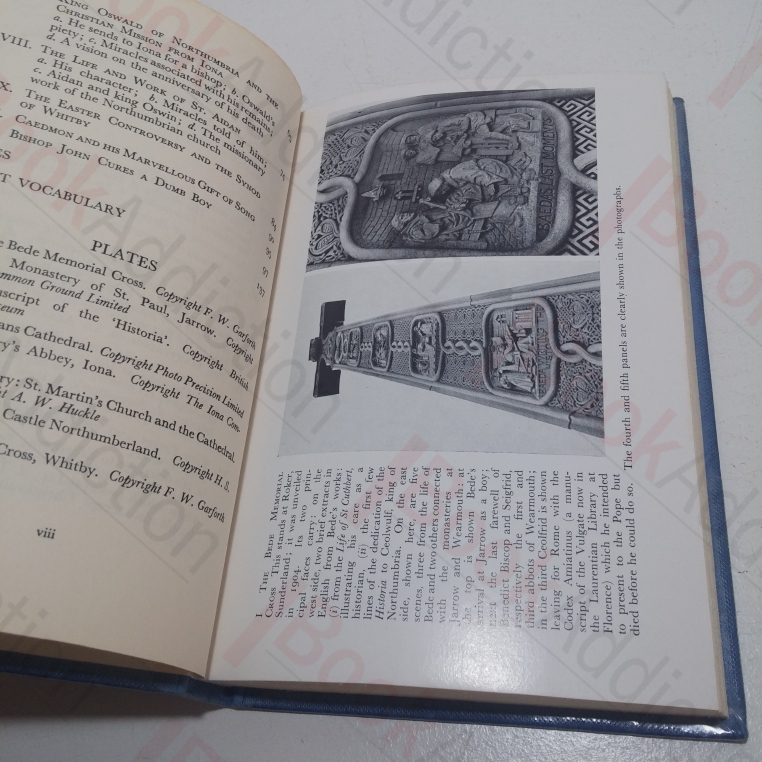 KING OSWALD OF NORTHUMBRIA AND THE
CHRISTIAN MISSION FROM IONA
a. He sends to Iona for a bishop; b. Oswald's
piety; c. Miracles associated with his remains;
d. A vision on the anniversary of his death
VIII. THE LIFE AND WORK OF ST. AIDAN
a. His character; b. Miracles told of him;
c. Aidan and king Oswin; d. The missionary
work of the Northumbrian church
X. THE EASTER CONTROVERSY AND THE SYNOD
OF WHITBY
CAEDMON AND HIS MARVELLOUS GIFT OF SONG
BISHOP JOHN CURES A DUMB BOY
ES
T VOCABULARY
84
90
95
97
137
PLATES
e Bede Memorial Cross. Copyright F. W. Garforth
Monastery of St. Paul, Jarrow. Copyright
ommon Ground Limited
nuscript of the 'Historia'. Copyright British
useum
ans Cathedral. Copyright Photo Precision Limited
ry's Abbey, Iona. Copyright The Iona Com-
ry: St. Martin's Church and the Cathedral.
ht A. W. Huckle
Castle Northumberland. Copyright H. S.
Cross, Whitby. Copyright F. W. Garforth
viii
I THE BEDE MEMORIAL
CROSS This stands at Roker,
Sunderland; it was unveiled
in 1904. Its two prin-
cipal faces carry: on the
west side, two brief extracts in
English from Bede's works;
(i) from the Life of St Cuthbert,
illustrating his care as a
historian, (ii) the first few
lines of the dedication of the
Historia to Ceolwulf, king of
Northumbria. On the east
side, shown here, are five
scenes, three from the life of
Bede and two others connected
with the monasteries at
Jarrow and Wearmouth; at
the top is shown Bede's
arrival at Jarrow as a boy;
next the last farewell of
Benedict Biscop and Seigfrid,
respectively the first and
third abbots of Wearmouth;
in the third Ceolfrid is shown
leaving for Rome with the
Codex Amiatinus (a manu-
script of the Vulgate now in
the Laurentian Library at
Florence) which he intended
to present to the Pope but
died before he could do so. The fourth and fifth panels are clearly shown in the photographs.
Book Addiction